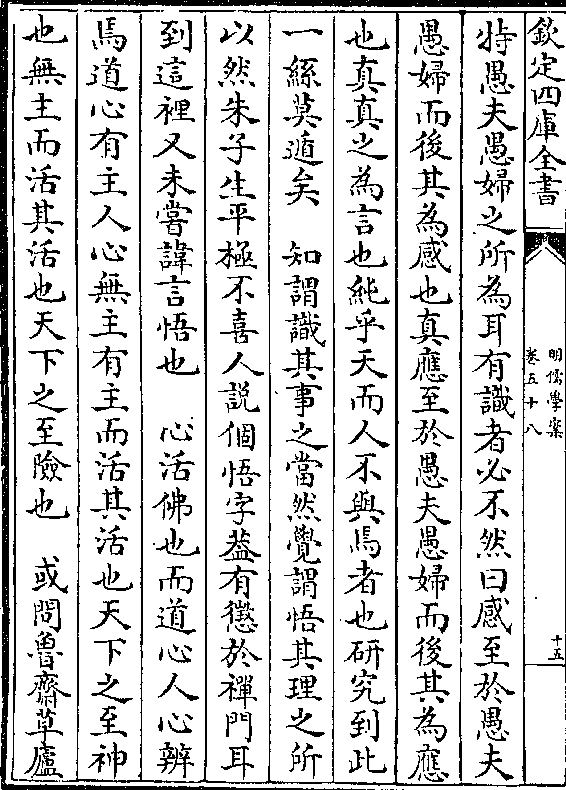 欽定四庫全書
明儒學案
卷五十八
十五
特愚夫愚婦之所為耳有識者必不然曰感至於愚夫
愚婦而後其為感也真應至於愚夫愚婦而後其為應
也真真之為言也純乎天而人不與焉者也研究到此
一絲莫遁矣　知謂識其事之當然覺謂悟其理之所
以然朱子生平極不喜人説個悟字葢有懲於禪門耳
到這裡又未嘗諱言悟也　心活佛也而道心人心辨
焉道心有主人心無主有主而活其活也天下之至神
也無主而活其活也天下之至險也　或問魯齋草廬